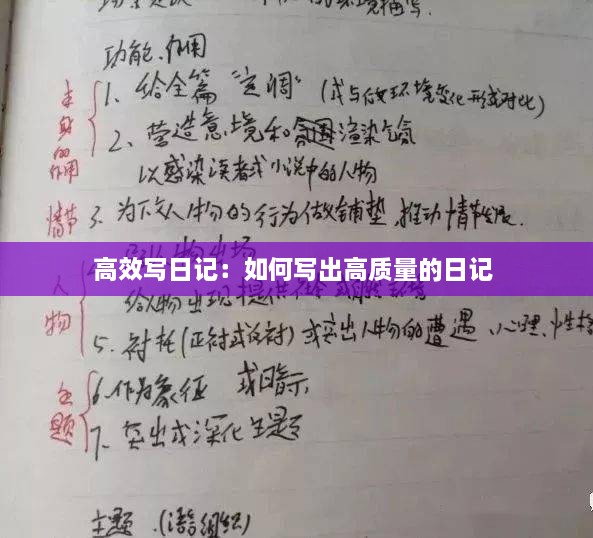 功能、作用
主身的作用
1、给全篇“定调”(或与后文环境变化形成对比)
2、营造意境和氛围渲染气氛
以感染读者或小说中的人物
情节
3、为下文人物的行为做铺垫,推动情节发展.
高效写日记：如何写出高质量的日记
人物
给人物出现提供
5、衬托(正衬或反衬)或突出人物的遭遇、心理、性格
主题
6、作为象征 或暗示
7、突出或深化主题
主题(语言组织)